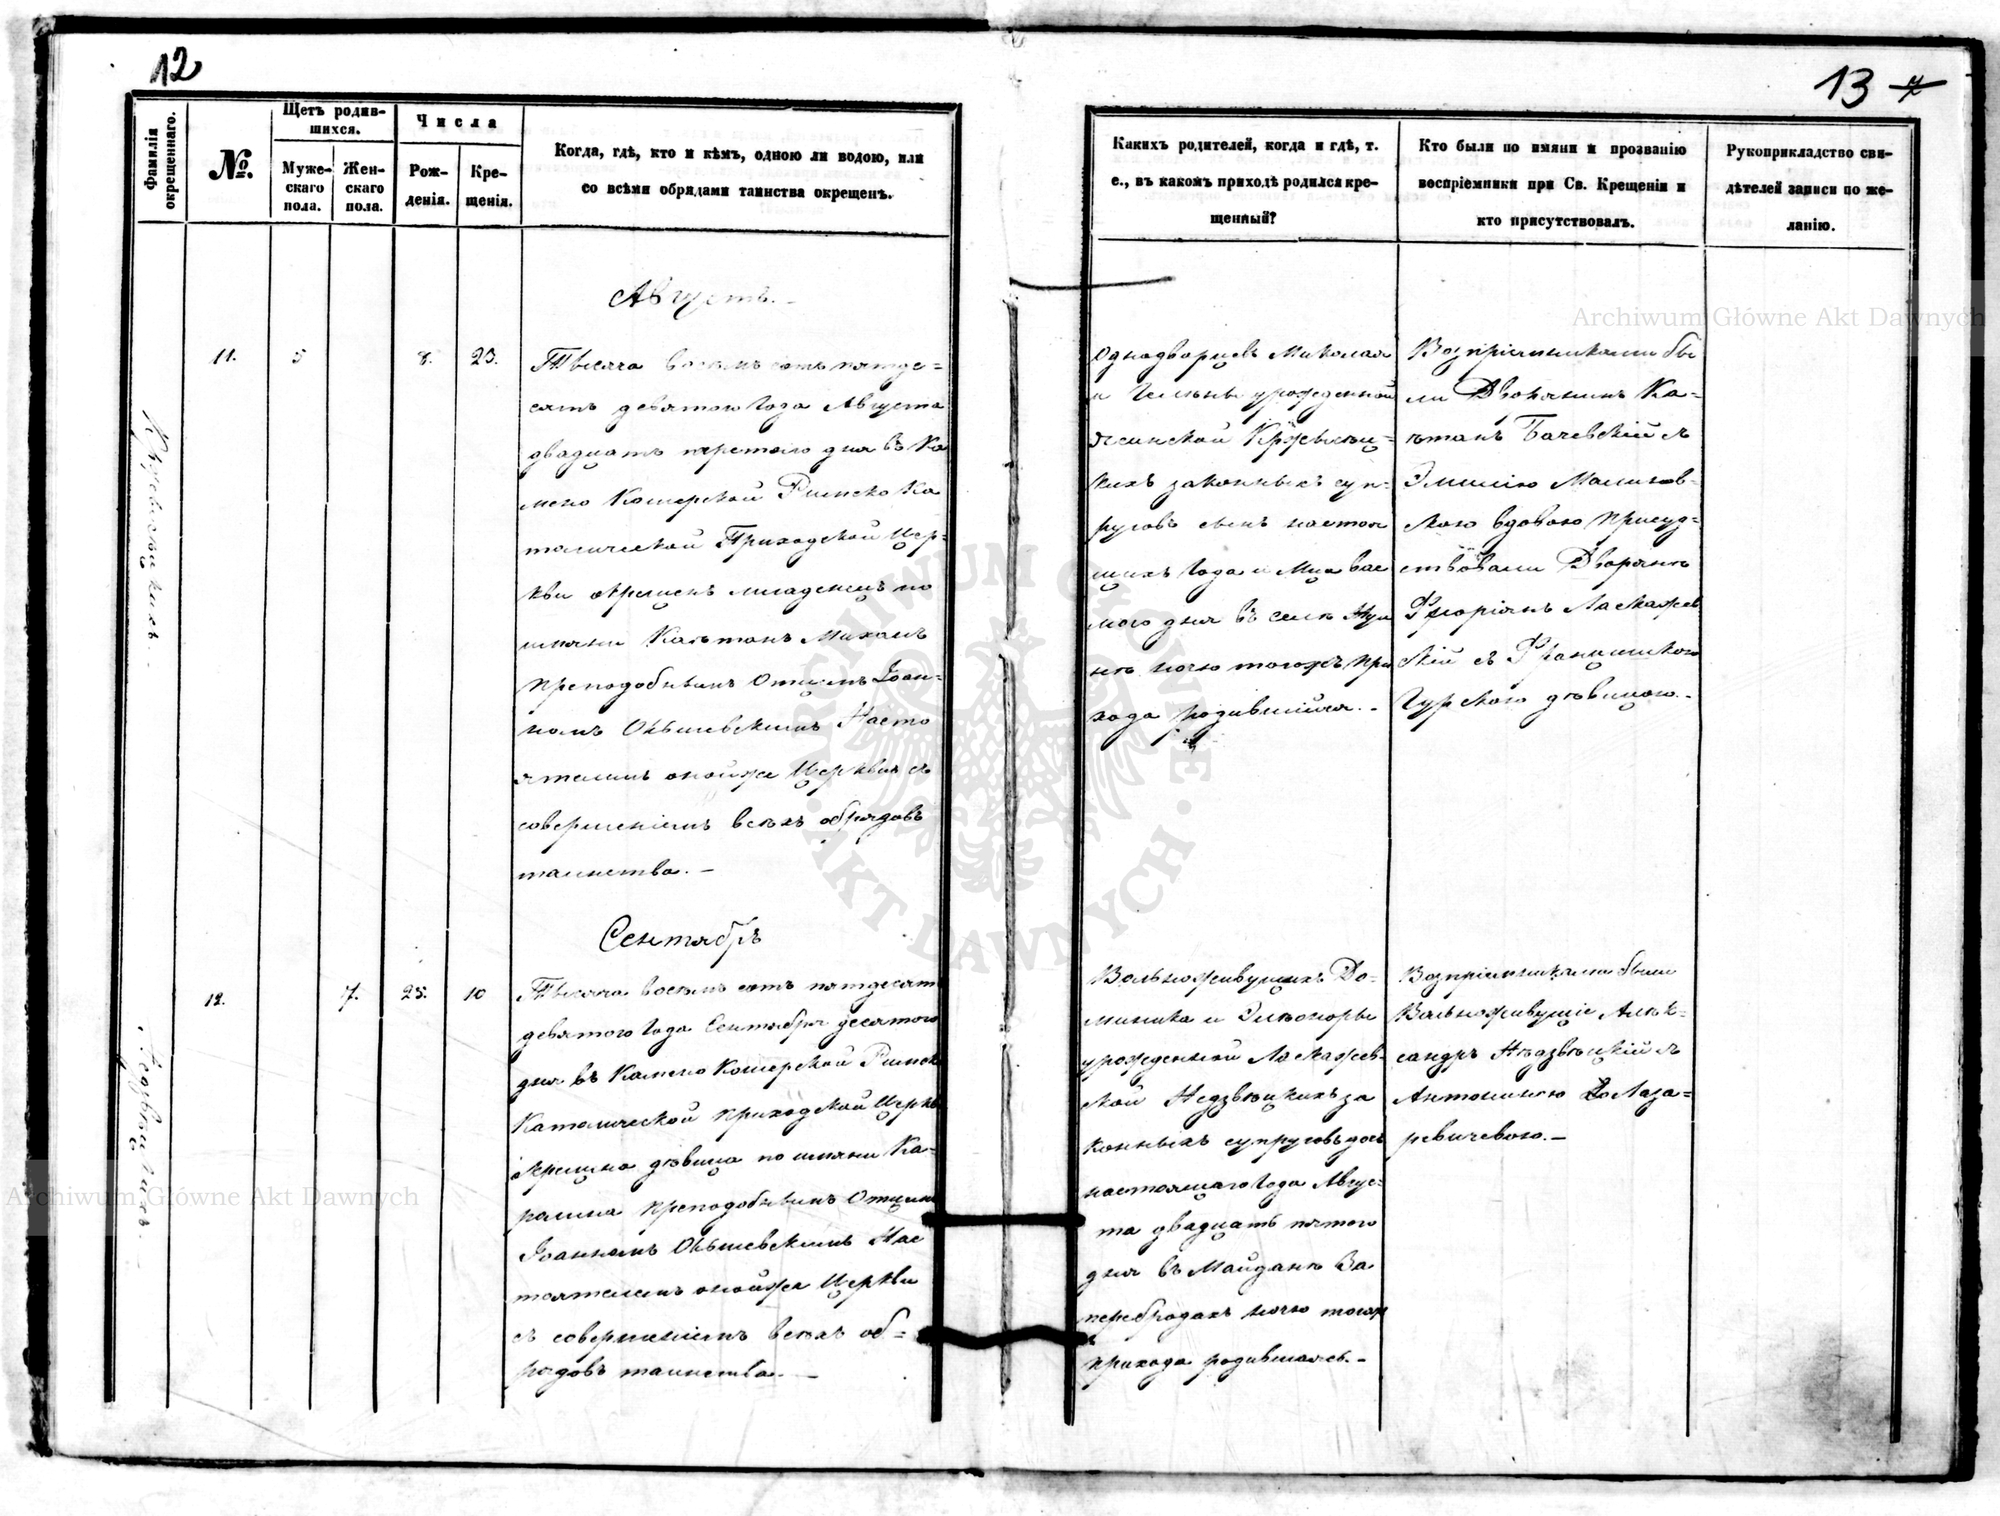 12
Фамилія окрещеннаго.
№.
Щетъ родив-
шихся.
Муже-
скаго
пола.
Жен-
скаго
пола.
Числа
Рож-
денія.
Кре-
щенія.
Когда, гдѣ, кто и кѣмъ, одною ли водою, или
со всѣми обрядами таинства окрещенъ.
Августъ.
11. 5 8. 23.
Тысяча восемъ сотъ пятде=
сятъ девятого Года Августа
двадцать третьяго дня въ Ка
мено Коширской Римско Ка
толической Приходской Цер=
кви окрещенъ младенецъ по
имяни Каэтанъ Михаилъ
преподобнымъ Отцемъ Іоан-
номъ Настоя
ятелемъ оной же Церквы съ
совершеніемъ всѣхъ обрядовъ
таинства. —
Сентябрь
12. 7. 25. 10
Тысяча восемъ сотъ пятдесятъ
девятого Года Сентября десятого
дня въ Камено Коширской Римско
Католической приходской Церкви
окрещена дѣвица по имяни Ка=
ролина преподобнымъ Отцемъ
Іоанномъ Нас
тоятелемъ оной же Церкви
съ совершеніемъ всѣхъ об=
рядовъ таинства. —
13
Какихъ родителей, когда и гдѣ, т.
е., въ какомъ приходѣ родился кре-
щенный?
Кто были по имяни и прозванію
воспріемники при Св. Крещеніи и
кто присутствовалъ.
Рукоприкладство сви-
дѣтелей записи по же-
ланію.
Однодворцевъ Миколая
и урожденной
законныхъ суп=
руговъ сынъ настоя
щихъ Года и Мца вос
мого дня въ селѣ
ночю тогожъ при
хода родившійся. -
Возпріемниками бы
ли Дворянинъ Ка=
ѣтанъ Бачевскій съ
Эмиліею Малинов-
скою вдовою присуд=
ствовали Дворянѣ
Флоріянъ Ласкажев
скій съ Францишкою
Гурскою дѣвицою. -
Вольноживущихъ До-
миника и Элѣоноры
урожденной Ласкажев-
ской Недзвѣцкихъ за
конныхъ супруговъ дочь
настоящаго Года Авгус-
та двадцать пятого
дня въ Майданѣ За
перебродахъ ночю тогожъ
прихода родившаясъ. -
Возпріемниками были
Вольноживущіе Алек-
сандръ Нѣдзвѣцкій съ
Антониною Лаза=
ревичевою. —
Archiwum Główne Akt Dawnych
Archiwum Główne Akt Dawnych
ARCHIWUM GŁÓWNE · AKT DAWNYCH ·